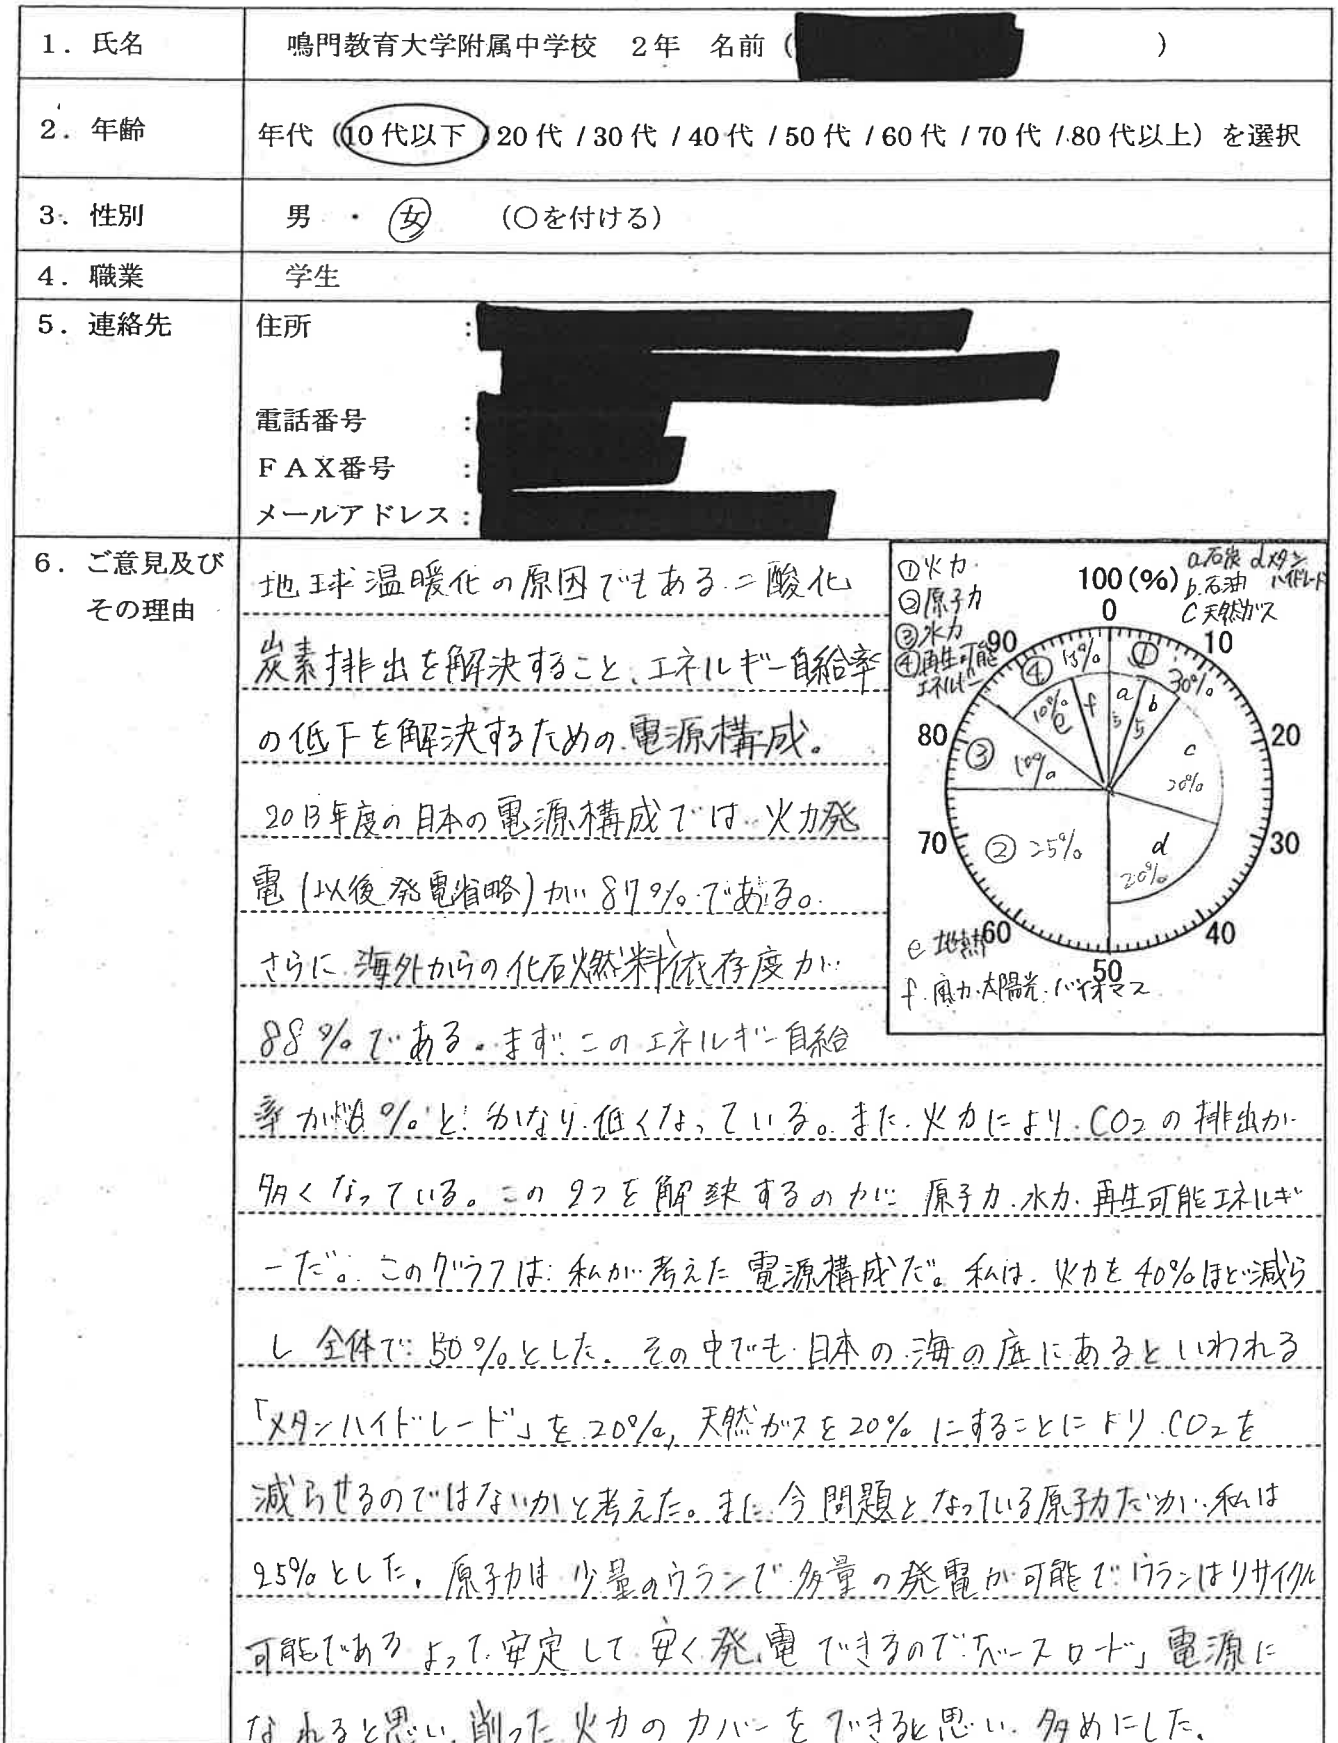 1. 氏名 鳴門教育大学附属中学校 2年 名前 ( )
2. 年齢 年代 (10代以下 / 20代 / 30代 / 40代 / 50代 / 60代 / 70代 / 80代以上) を選択
3. 性別 男 ・ 女 (○を付ける)
4. 職業 学生
5. 連絡先 住所 :
電話番号 :
FAX番号 :
メールアドレス :
6. ご意見及び
その理由
地球温暖化の原因でもある二酸化
炭素排出を解決すること、エネルギー自給率
の低下を解決するための電源構成。
2013年度の日本の電源構成では、火力発
電(以後発電省略)が87%である。
さらに海外からの化石燃料依存度が
88%である。まず、このエネルギー自給
率が %と、かなり低くなっている。また火力によりCO2の排出が
多くなっている。この2つを解決するのが 原子力、水力、再生可能エネルギ
ーだ。このグラフは、私が考えた電源構成だ。私は、火力を40%ほど減ら
し 全体で50%とした。その中でも日本の海の底にあるといわれる
「メタンハイドレード」を20%, 天然ガスを20%にすることによりCO2を
減らせるのではないかと考えた。また今問題となっている原子力だが、私は
25%とした。原子力は少量のウランで多量の発電が可能で、ウランはリサイクル
可能である よって、安定して安く発電できるので「ベースロード」電源に
なれると思い、削った火力のカバーをできると思い、多めにした。
①火力
②原子力
③水力
④再生可能
エネルギー
a.石炭 dメタン
ハイドレード
b.石油
c天然ガス
100(%)
0
10
20
30
40
50
60
70
80
90
① 30%
a 5
b 5
c 20%
d 20%
② 25%
③ 10%
④ 15%
10% e
f
e 地熱
f 風力・太陽光・バイオマス